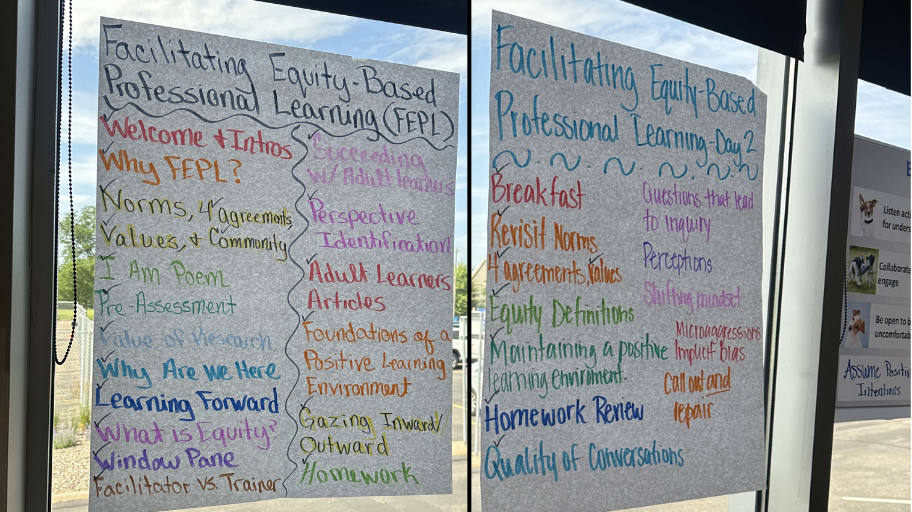 Facilitating Equity-Based
Professional Learning (FEPL)
Welcome + Intros
Why FEPL?
Norms, 4 agreements,
Values, + Community
I Am Poem
Pre-Assessment
Value of Research
Why Are We Here
Learning Forward
What is Equity?
Window Pane
Facilitator vs. Trainer
Succeeding
w/ Adult learners
Perspective
Identification
Adult Learners
Articles
Foundations of a
Positive Learning
Environment
Gazing Inward/
Outward
Homework
Facilitating Equity-Based
Professional Learning-Day 2
Breakfast
Revisit Norms
4 agreements, Values
Equity Definitions
Maintaining a positive
learning enviroment.
Homework Review
Quality of Conversations
Questions that lead
to inquiry
Perceptions
Shifting mindset
Microaggressions
Implicit Bias
Call out and
repair
Listen acti
for unders
Collaborate
engage
Be open to b
uncomfortab
Assume Positiv
Intentions